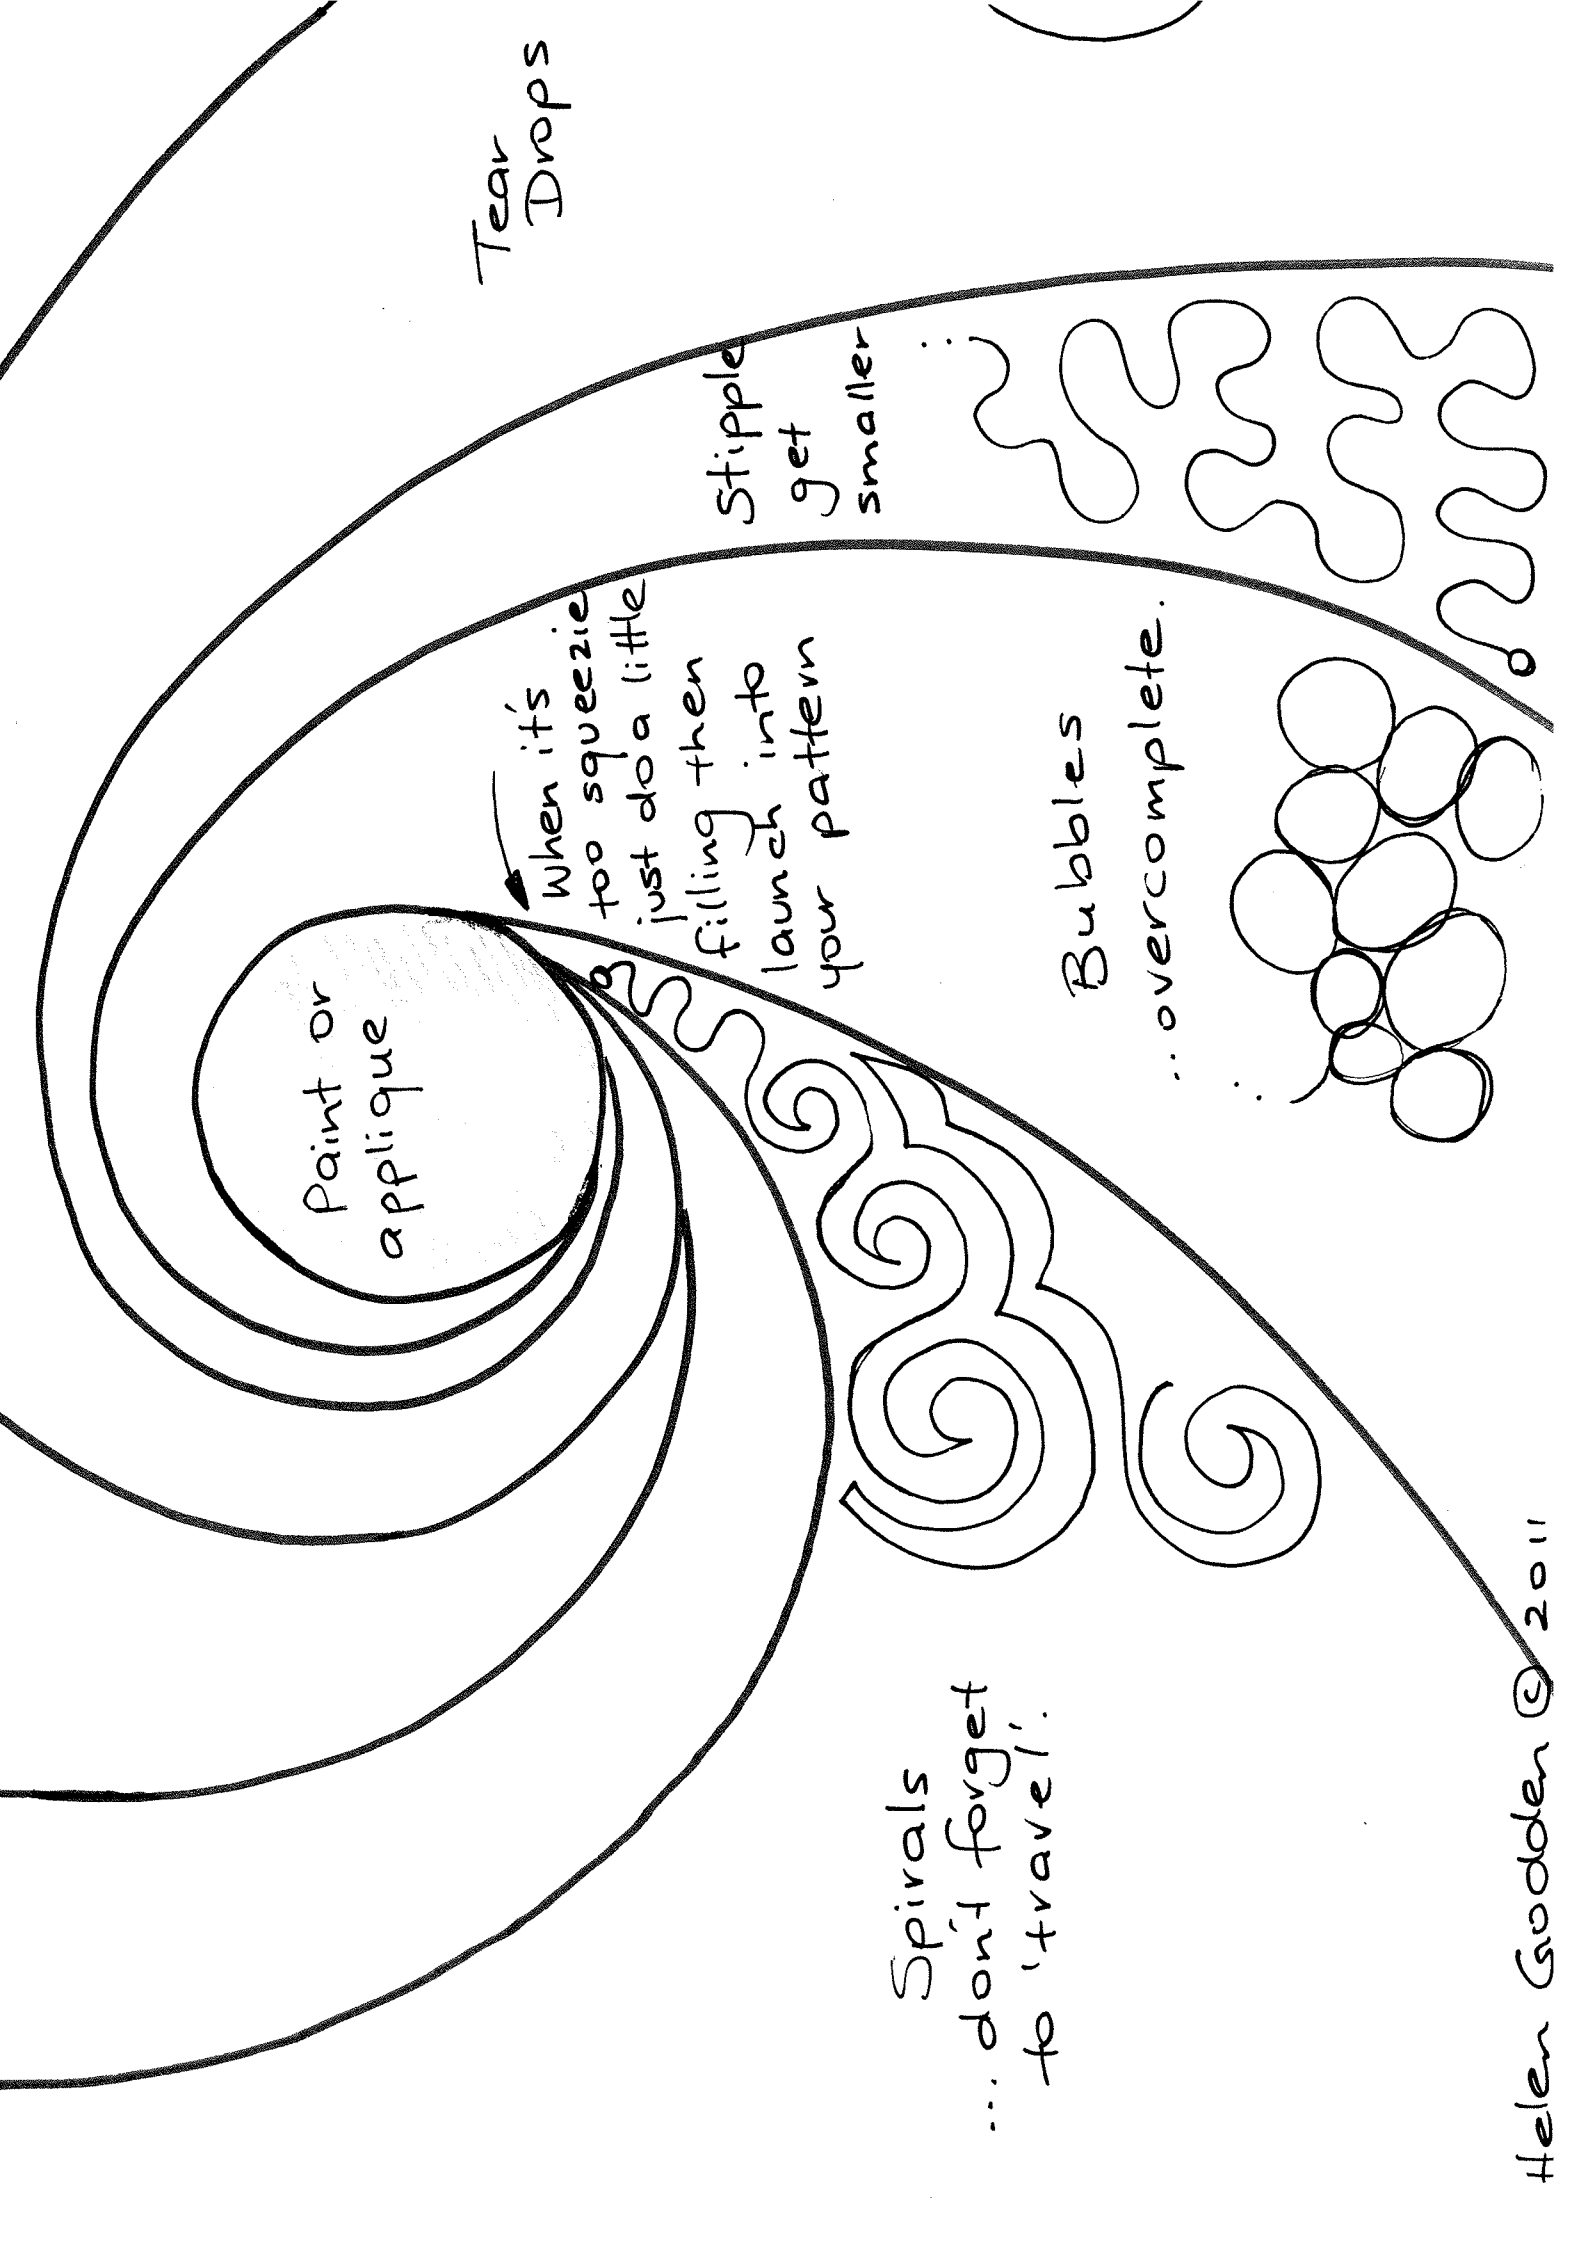 Tear
Drops
Stipple
get
smaller
When it's
too squeezie
just do a little
filling then
launch into
your pattern
Paint or
applique
Bubbles
...overcomplete.
Spirals
... don't forget
to 'travel'.
Helen Godden © 2011